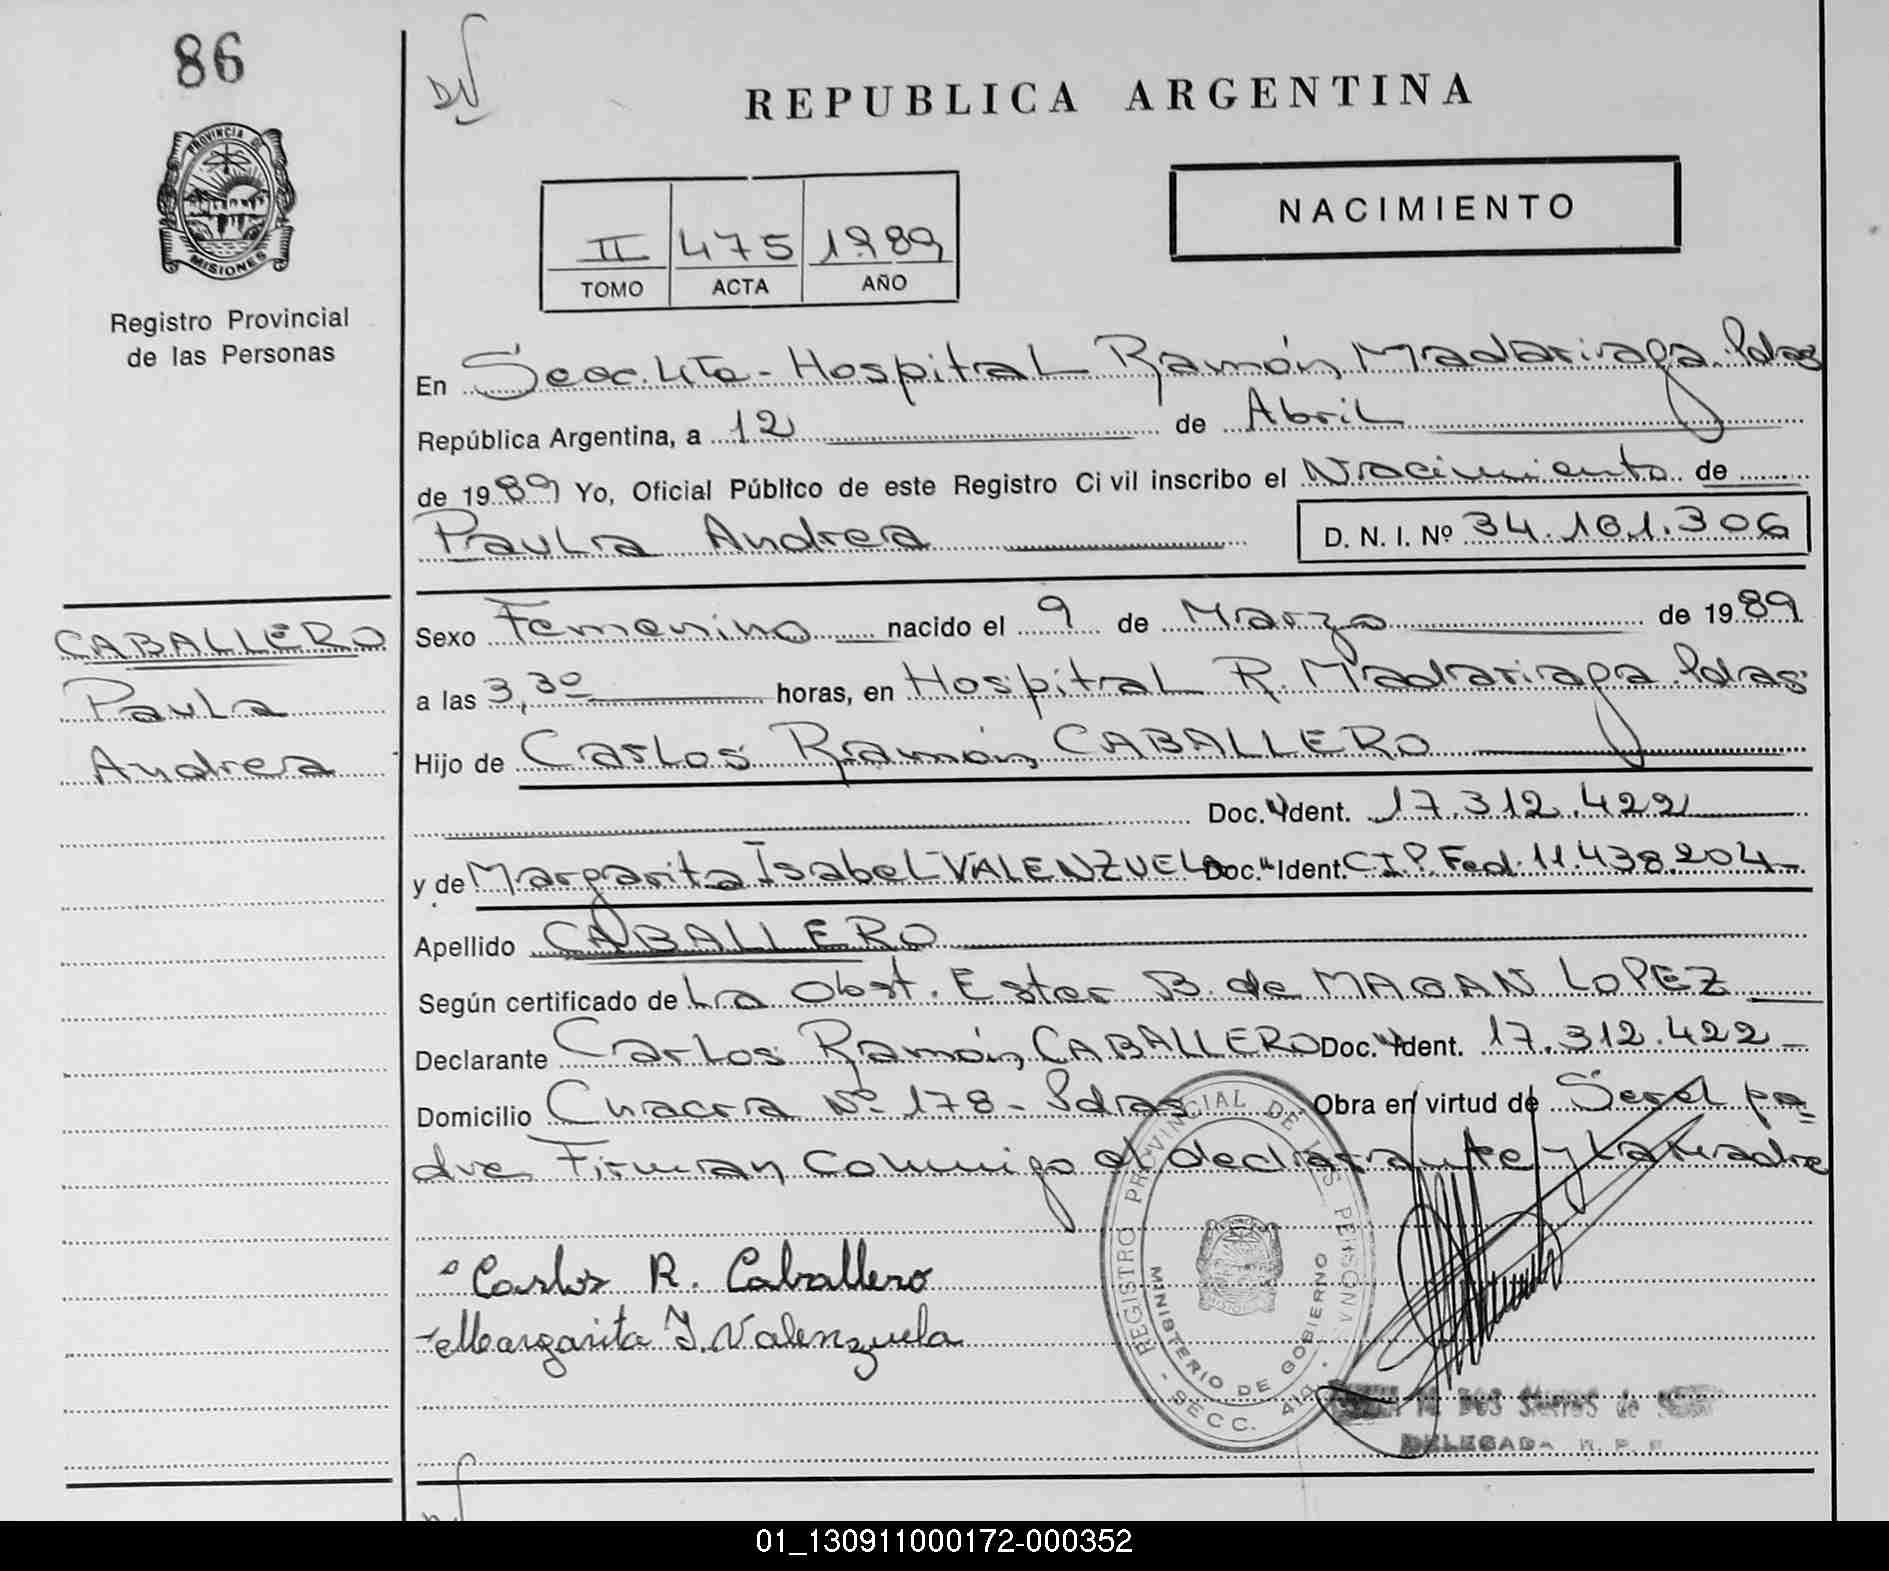 86
DN
REPUBLICA ARGENTINA
PROVINCIA DE
MISIONES
Registro Provincial
de las Personas
NACIMIENTO
II 475 1989
TOMO ACTA AÑO
En Secc. 4ta - Hospital Ramón Madariaga. Pdas
República Argentina, a 12 de Abril
de 1989 Yo, Oficial Público de este Registro Civil inscribo el Nacimiento de
Paula Andrea D. N. I. Nº 34.161.306
CABALLERO
Paula
Andrea
Sexo Femenino nacido el 9 de Marzo de 1989
a las 3,30 horas, en Hospital R. Madariaga. Pdas
Hijo de Carlos Ramón CABALLERO
Doc. Ident. 17.312.422
y de Margarita Isabel VALENZUELA Doc. Ident. C.I.P. Fed. 11.438.204-
Apellido CABALLERO
Según certificado de La Obst. Ester B. de MAGAN LOPEZ
Declarante Carlos Ramón CABALLERO Doc. Ident. 17.312.422-
Domicilio Chacra Nº 178- Pdas Obra en virtud de Ser el pa-
dre Firman conmigo el declarante y la Madre
Carlos R. Caballero
Margarita I. Valenzuela
REGISTRO PROVINCIAL DE LAS PERSONAS
MINISTERIO DE GOBIERNO
- SECC. 4ta. -
DOS SANTOS de
DELEGADA R. P. P.
01_130911000172-000352